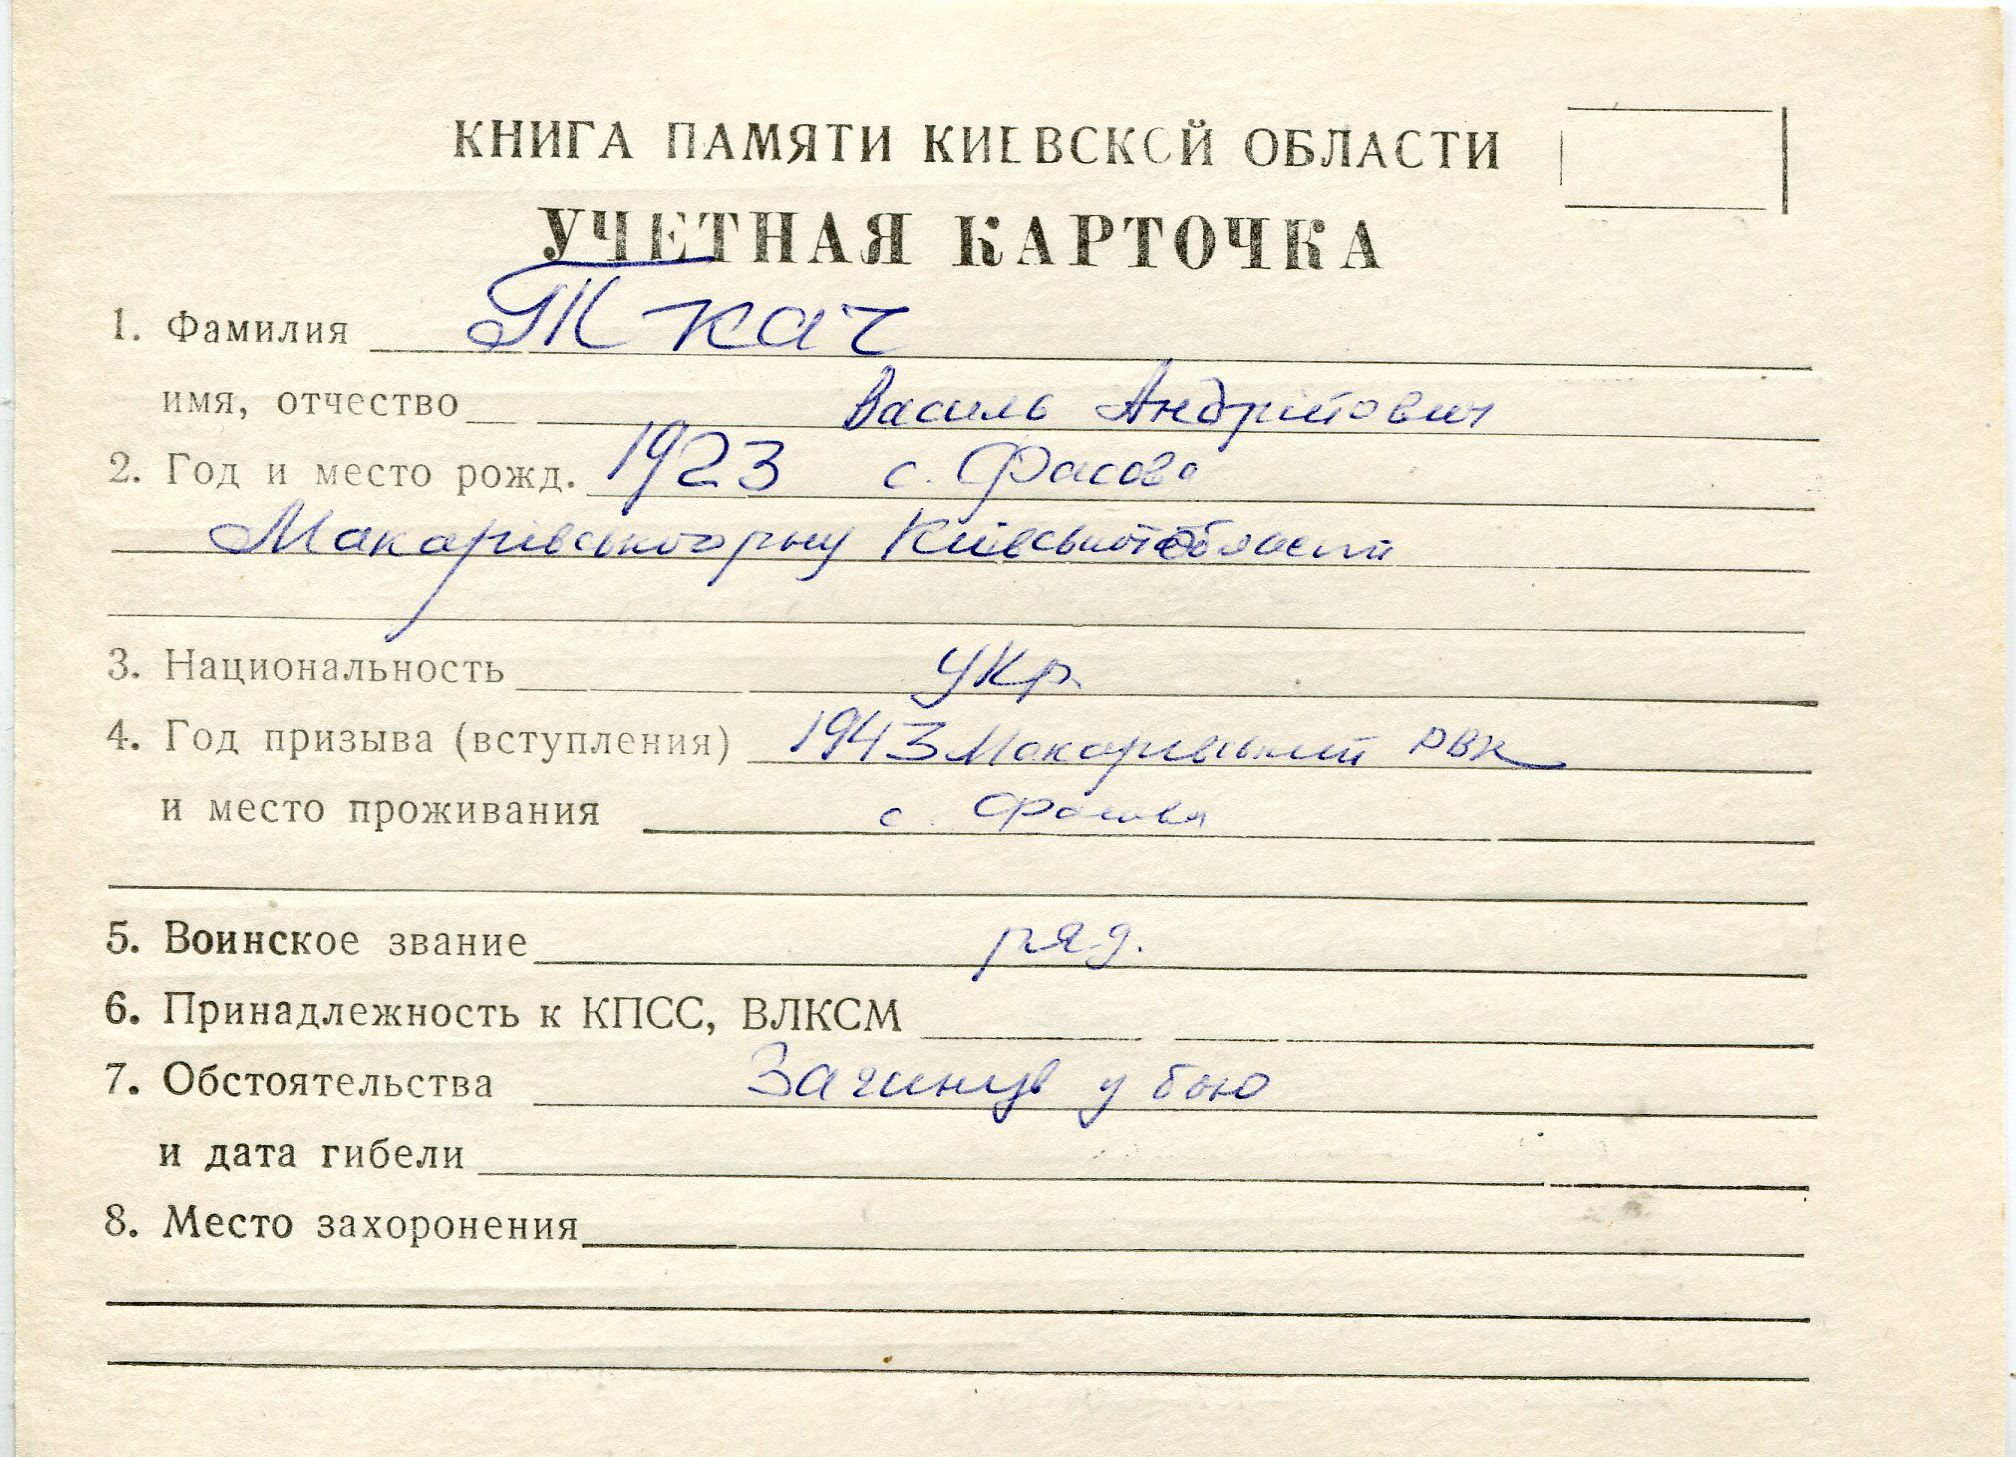 КНИГА ПАМЯТИ КИЕВСКОЙ ОБЛАСТИ
УЧЕТНАЯ КАРТОЧКА
1. Фамилия Ткач
имя, отчество Василь Андрійович
2. Год и место рожд. 1923 с. Фасова
Макарівського р-ну Київської області
3. Национальность укр.
4. Год призыва (вступления) 1943 Макарівський РВК
и место проживания с. Фасова
5. Воинское звание ряд.
6. Принадлежность к КПСС, ВЛКСМ
7. Обстоятельства Загинув у бою
и дата гибели
8. Место захоронения